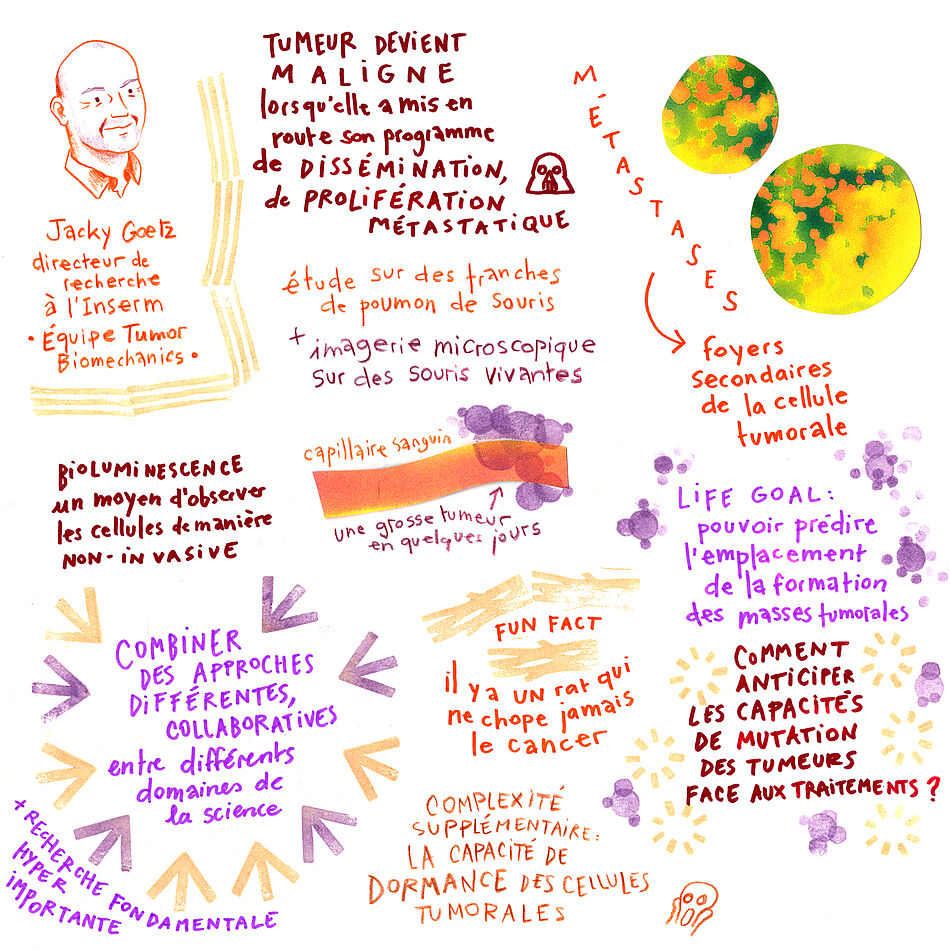 Jacky Goetz
directeur de
recherche
à l'Inserm
• Équipe Tumor
Biomechanics •
TUMEUR DEVIENT
MALIGNE
lorsqu'elle a mis en
route son programme
de DISSÉMINATION,
de PROLIFÉRATION
MÉTASTATIQUE
étude sur des tranches
de poumon de souris
+ imagerie microscopique
sur des souris vivantes
MÉTASTASES
foyers
secondaires
de la cellule
tumorale
capillaire sanguin
une grosse tumeur
en quelques jours
BIOLUMINESCENCE
un moyen d'observer
les cellules de manière
NON-INVASIVE
LIFE GOAL:
pouvoir prédire
l'emplacement
de la formation
des masses tumorales
COMBINER
DES APPROCHES
DIFFÉRENTES,
COLLABORATIVES
entre différents
domaines de
la science
+ RECHERCHE FONDAMENTALE
HYPER
IMPORTANTE
FUN FACT
il y a un rat qui
ne chope jamais
le cancer
COMMENT
ANTICIPER
LES CAPACITÉS
DE MUTATION
DES TUMEURS
FACE AUX TRAITEMENTS ?
COMPLEXITÉ
SUPPLÉMENTAIRE:
LA CAPACITÉ DE
DORMANCE DES CELLULES
TUMORALES